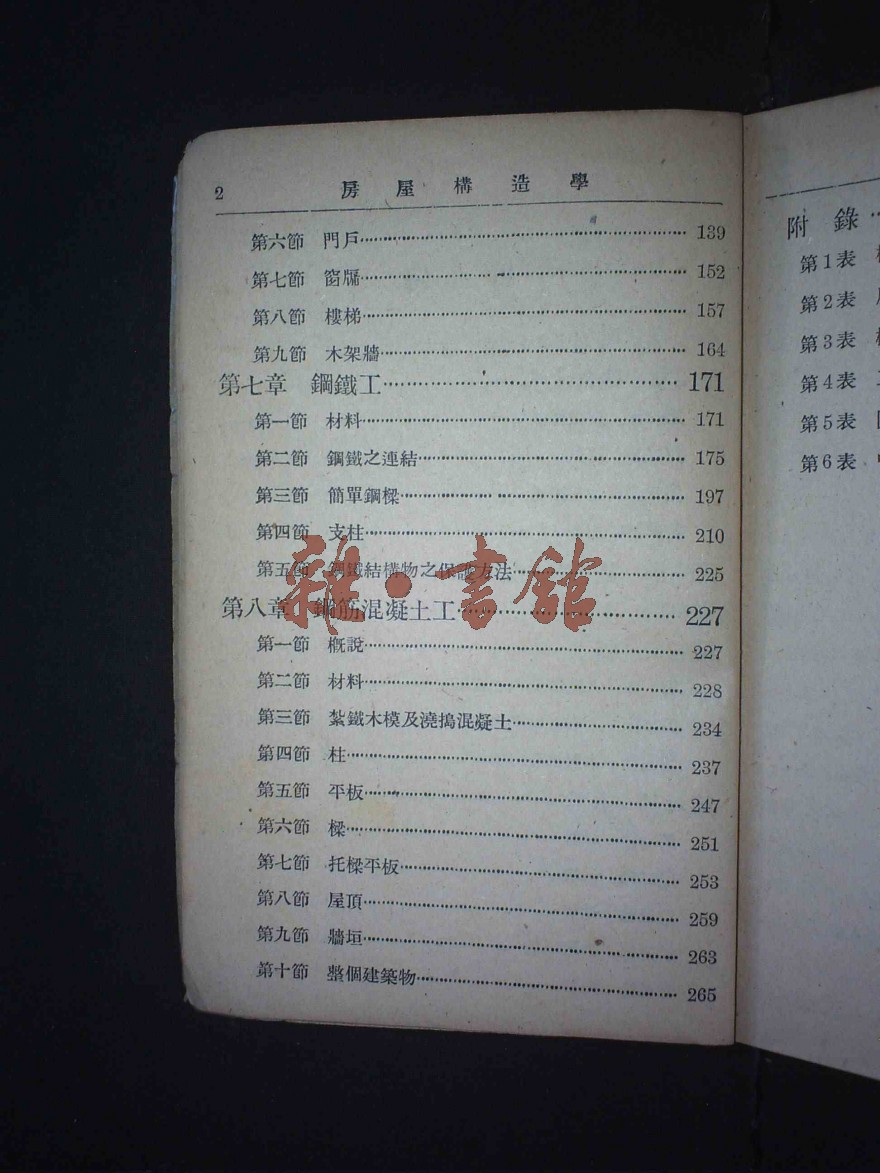 2 房屋構造學
第六節 門戶 139
第七節 窗牖 152
第八節 樓梯 157
第九節 木架牆 164
第七章 鋼鐵工 171
第一節 材料 171
第二節 鋼鐵之連結 175
第三節 簡單鋼樑 197
第四節 支柱 210
第五節 鋼鐵結構物之保護方法 225
第八章 鋼筋混凝土工 227
第一節 概說 227
第二節 材料 228
第三節 紮鐵木模及澆搗混凝土 234
第四節 柱 237
第五節 平板 247
第六節 樑 251
第七節 托樑平板 253
第八節 屋頂 259
第九節 牆垣 263
第十節 整個建築物 265
雜·書館
附錄
第1表
第2表
第3表
第4表
第5表
第6表